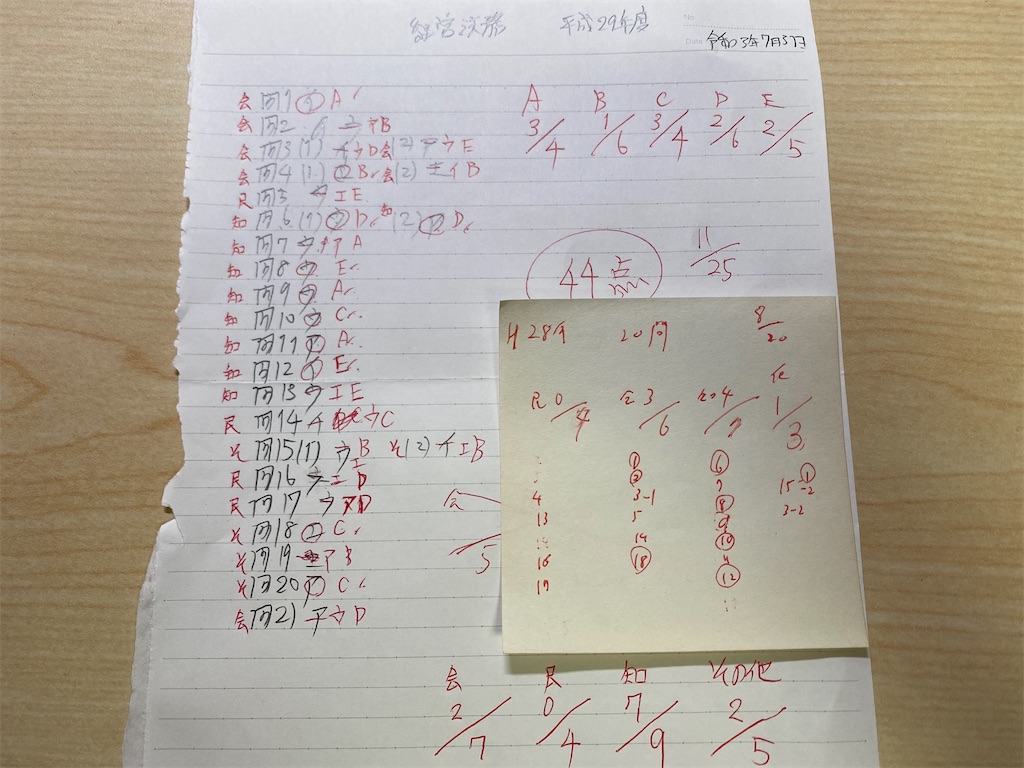 経営法務 平成29年度
No
Date 令和3年7月3日
会 問1 A
会 問2 イ→アB
会 問3(1) イ→ウD 会(2) ア→ウE
会 問4(1) B 会(2) エ→イB
民 問5 ウ→エE
知 問6(1) D 知(2) D
知 問7 ウ→ア A
知 問8 ウ E
知 問9 A
知 問10 ウ C
知 問11 ア A
知 問12 イ E
知 問13 ウ→エE
民 問14 イ→ウC
そ 問15(1) ウ→エB そ(2) イ→エB
民 問16 ウ→エD
民 問17 ウ→アD
そ 問18 エ C
そ 問19 →ア
そ 問20 ア C
会 問21 ア→ウD
A B C D E
3/4 1/6 3/4 2/6 2/5
44点
11/25
会
5
H28年 20問 8/20
民0/4 会3/6 知4/7 他1/3
4
13
16
17
①
②
3-1
5
14
⑱
⑥
7
⑧
9
⑩
⑫
15-2
①
3-2
会 民 知 その他
2/7 0/4 7/9 2/5